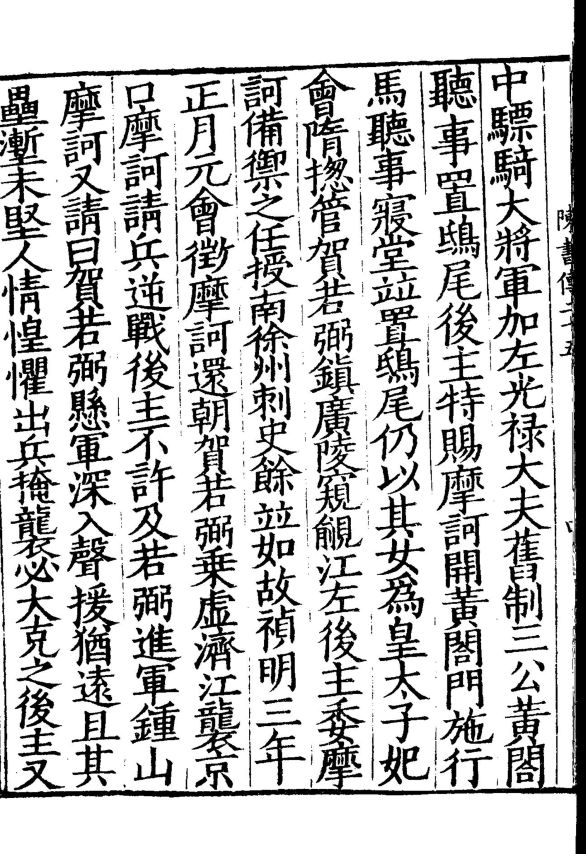 陳書傳二十五
中驃騎大將軍加左光禄大夫舊制三公黃閤
聽事置鴟尾後主特賜摩訶開黃閤門施行
馬聽事寢堂竝置鴟尾仍以其女爲皇太子妃
會隋揔管賀若弼鎮廣陵窺覦江左後主委摩
訶備禦之任授南徐州刺史餘竝如故禎明三年
正月元會徵摩訶還朝賀若弼乗虚濟江襲京
口摩訶請兵逆戰後主不許及若弼進軍鍾山
摩訶又請曰賀若弼懸軍深入聲援猶遠且其
壘塹未堅人情惶懼出兵掩襲必大克之後主又